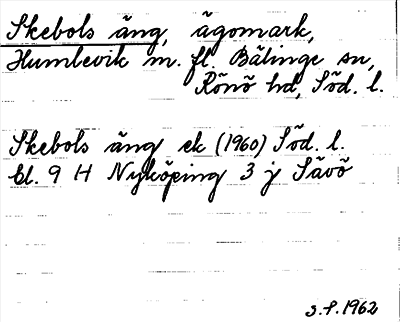 Skebols äng, ägomark,
Humlevik m. fl. Bälinge sn,
Rönö hd, Söd. l.
Skebols äng ek (1960) Söd. l.
Bl. 9 H Nyköping 3 j Sävö
1962